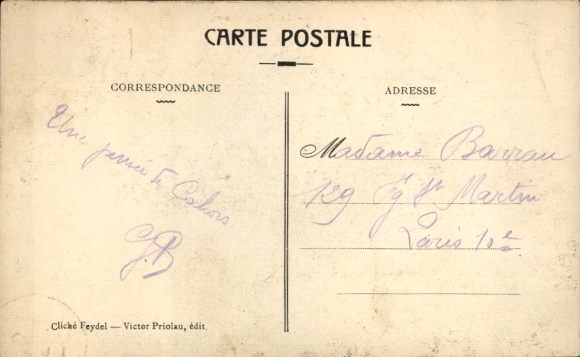 CARTE POSTALE
CORRESPONDANCE
ADRESSE
Une pensée de Cahors
Madame Barrau
129 Fg St Martin
Paris 10e
Cliché Feydel — Victor Priolau, édit.